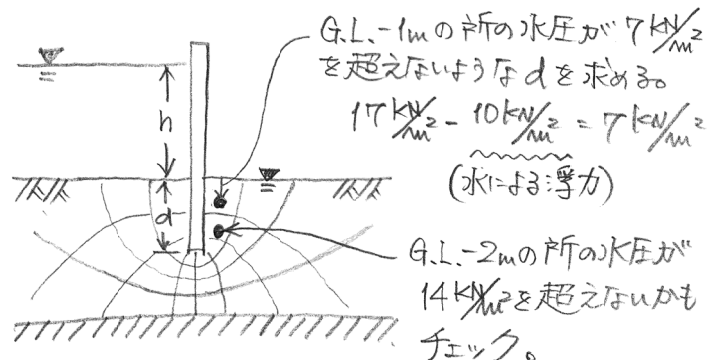 G.L.-1mの所の水圧が7kN/m²
を超えないようなdを求める。
17kN/m² - 10kN/m² = 7kN/m²
(水による浮力)
h
d
G.L.-2mの所の水圧が
14kN/m²を超えないかも
チェック。